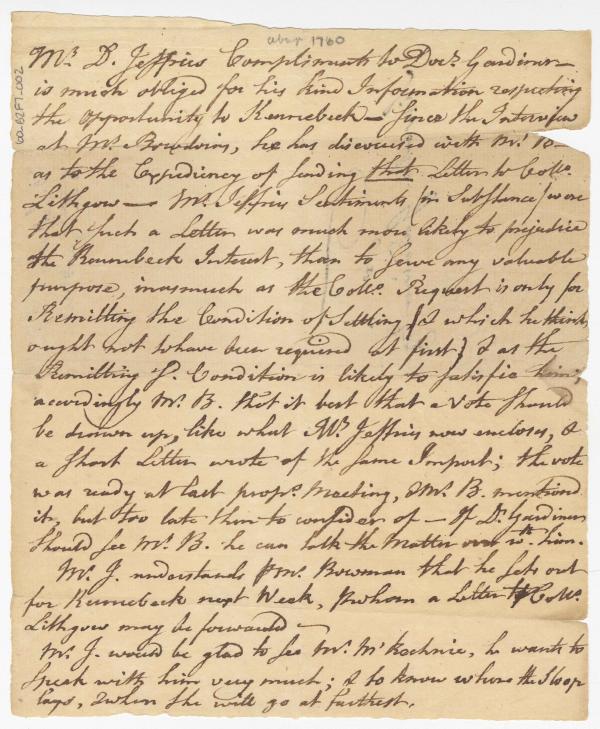 abt 1760
60-B2F7-002
Mr. D. Jeffries Compliments to Docr. Gardiner
is much obliged for his kind Information respecting
the Opportunity to Kennebeck — Since the Interview
at Mr. Bowdoins, he has discoursed with Mr. B—
as to the Expediency of sending that Letter to Collo.
Lithgow — Mr. Jeffries Sentiments (in Substance) were
that such a Letter was much more likely to prejudice
the Kennebeck Interest, than to serve any valuable
purpose, inasmuch as the Collo. Request is only for
Remitting the Condition of Settling [& which he thinks
ought not to have been required at first] & as the
Remitting sd. Condition is likely to satisfie him;
accordingly Mr. B. tho't it best that a Vote should
be drawn up, like what Mr. Jeffries now encloses, &
a short Letter wrote of the same Import; the vote
was ready at last props. Meeting, & Mr. B. mentiond
it, but too late then to consider of — If Dr. Gardiner
should see Mr. B. he can talk the Matter over wth. him.
Mr. J. understands p Mr. Bowman that he sets out
for Kennebeck next Week, p whom a Letter to Collo.
Lithgow may be forwarded —
Mr. J. would be glad to see Mr. McKechnie, he wants to
speak with him very much; & to know where the Sloop
lays, & when she will go at farthest.